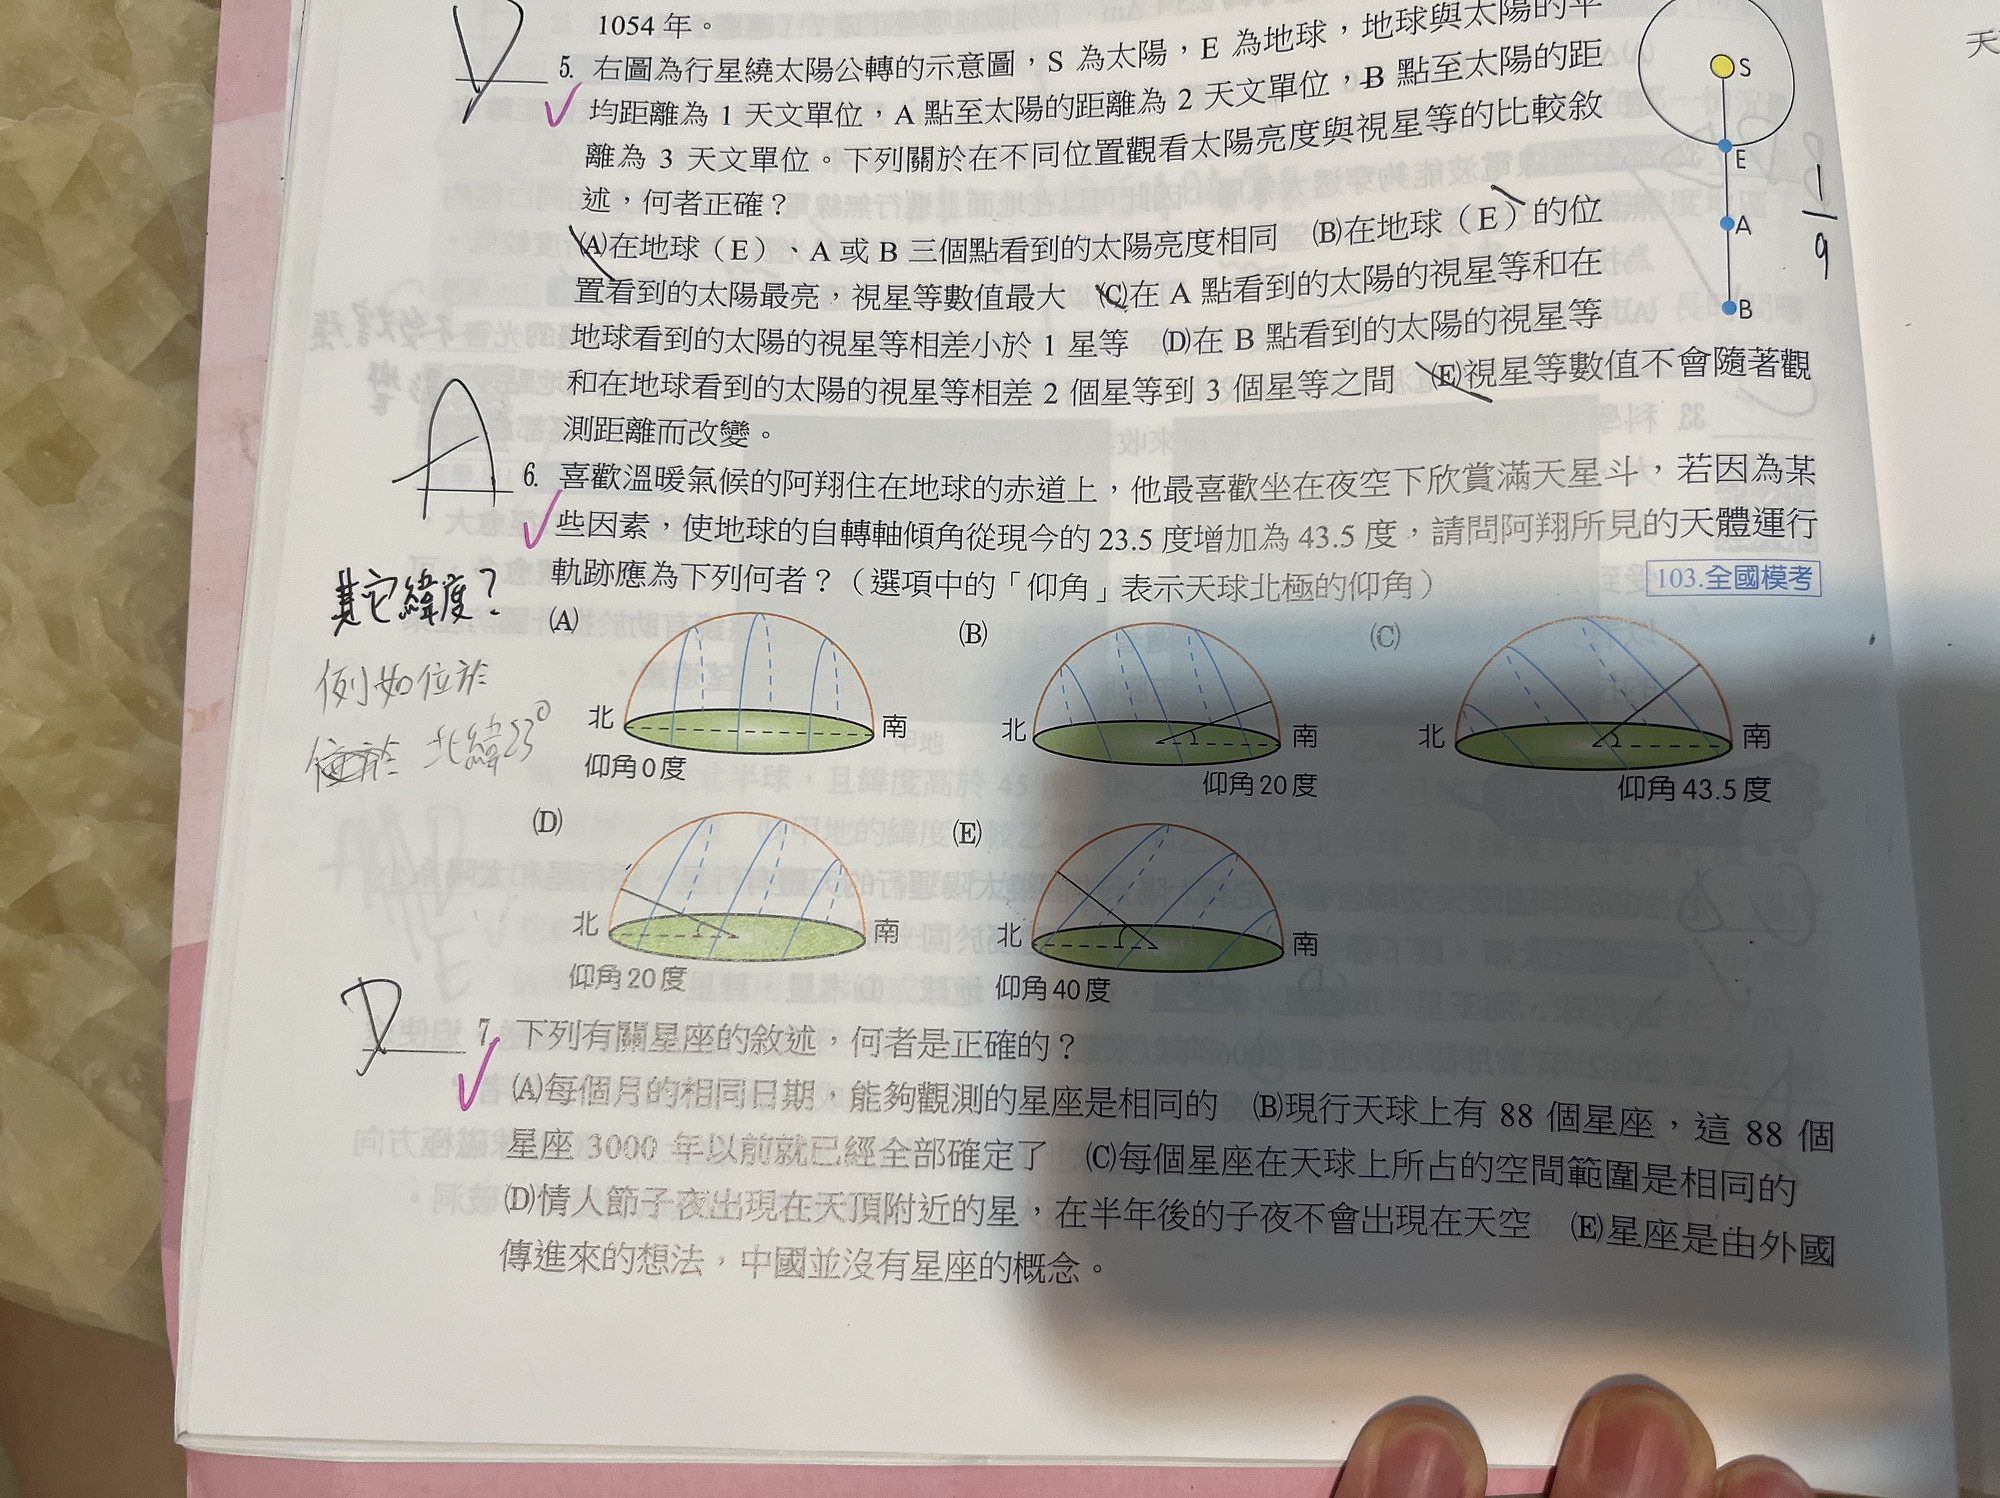 1054年。
5. 右圖為行星繞太陽公轉的示意圖，S 為太陽，E 為地球，地球與太陽的平
均距離為 1 天文單位，A 點至太陽的距離為 2 天文單位，B 點至太陽的距
離為 3 天文單位。下列關於在不同位置觀看太陽亮度與視星等的比較敘
述，何者正確？
(A)在地球（E）、A 或 B 三個點看到的太陽亮度相同　(B)在地球（E）的位
置看到的太陽最亮，視星等數值最大　(C)在 A 點看到的太陽的視星等和在
地球看到的太陽的視星等相差小於 1 星等　(D)在 B 點看到的太陽的視星等
和在地球看到的太陽的視星等相差 2 個星等到 3 個星等之間　(E)視星等數值不會隨著觀
測距離而改變。
D
S
E
A
B
1/9
天
A
6. 喜歡溫暖氣候的阿翔住在地球的赤道上，他最喜歡坐在夜空下欣賞滿天星斗，若因為某
些因素，使地球的自轉軸傾角從現今的 23.5 度增加為 43.5 度，請問阿翔所見的天體運行
軌跡應為下列何者？（選項中的「仰角」表示天球北極的仰角）
103.全國模考
其它緯度？
例如位於
北緯23°
(A)
北
南
仰角0度
(B)
北
南
仰角20度
(C)
北
南
仰角43.5度
(D)
北
南
仰角20度
(E)
北
南
仰角40度
D
7. 下列有關星座的敘述，何者是正確的？
(A)每個月的相同日期，能夠觀測的星座是相同的　(B)現行天球上有 88 個星座，這 88 個
星座 3000 年以前就已經全部確定了　(C)每個星座在天球上所占的空間範圍是相同的
(D)情人節子夜出現在天頂附近的星，在半年後的子夜不會出現在天空　(E)星座是由外國
傳進來的想法，中國並沒有星座的概念。